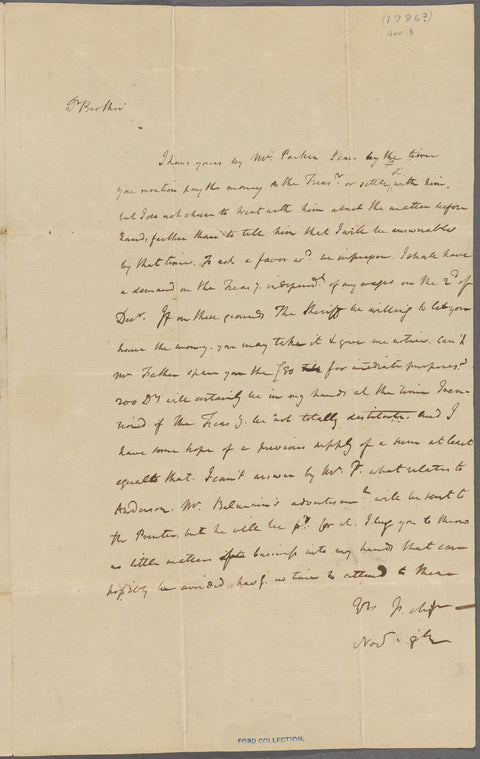 (1786?)
Nov. 8
Dr Brother
I have yours by Mr. Parker I can by the time
you mention pay the money to the Treasr. or settle with him.
but I do not chuse to treat with him about the matter before
hand, further than to tell him that I will be answerable
by that time. To ask a favor wd. be improper. I shall have
a demand on the Treasy. independt. of my wages on the 2d. of
Decr. If on these grounds the Sheriff be willing to let you
have the money. you may take it & give me notice. Can't
my Father spare you the £30 for immediate purposes?
200 Drs will certainly be in my hands at the time I men-
tioned if the Treasy. be not totally destitute. and I
have some hope of a previous supply of a sum at least
equal to that. I can't answer by Mr. P. what relates to
Anderson. Mr. Balmain's advertisemt. will be sent to
the Printer, but he will be pd. for it. I beg you to throw
as little business into my hands that can
possibly be avoided. havg. no time to attend to them
Novr. 8th
FORD COLLECTION.